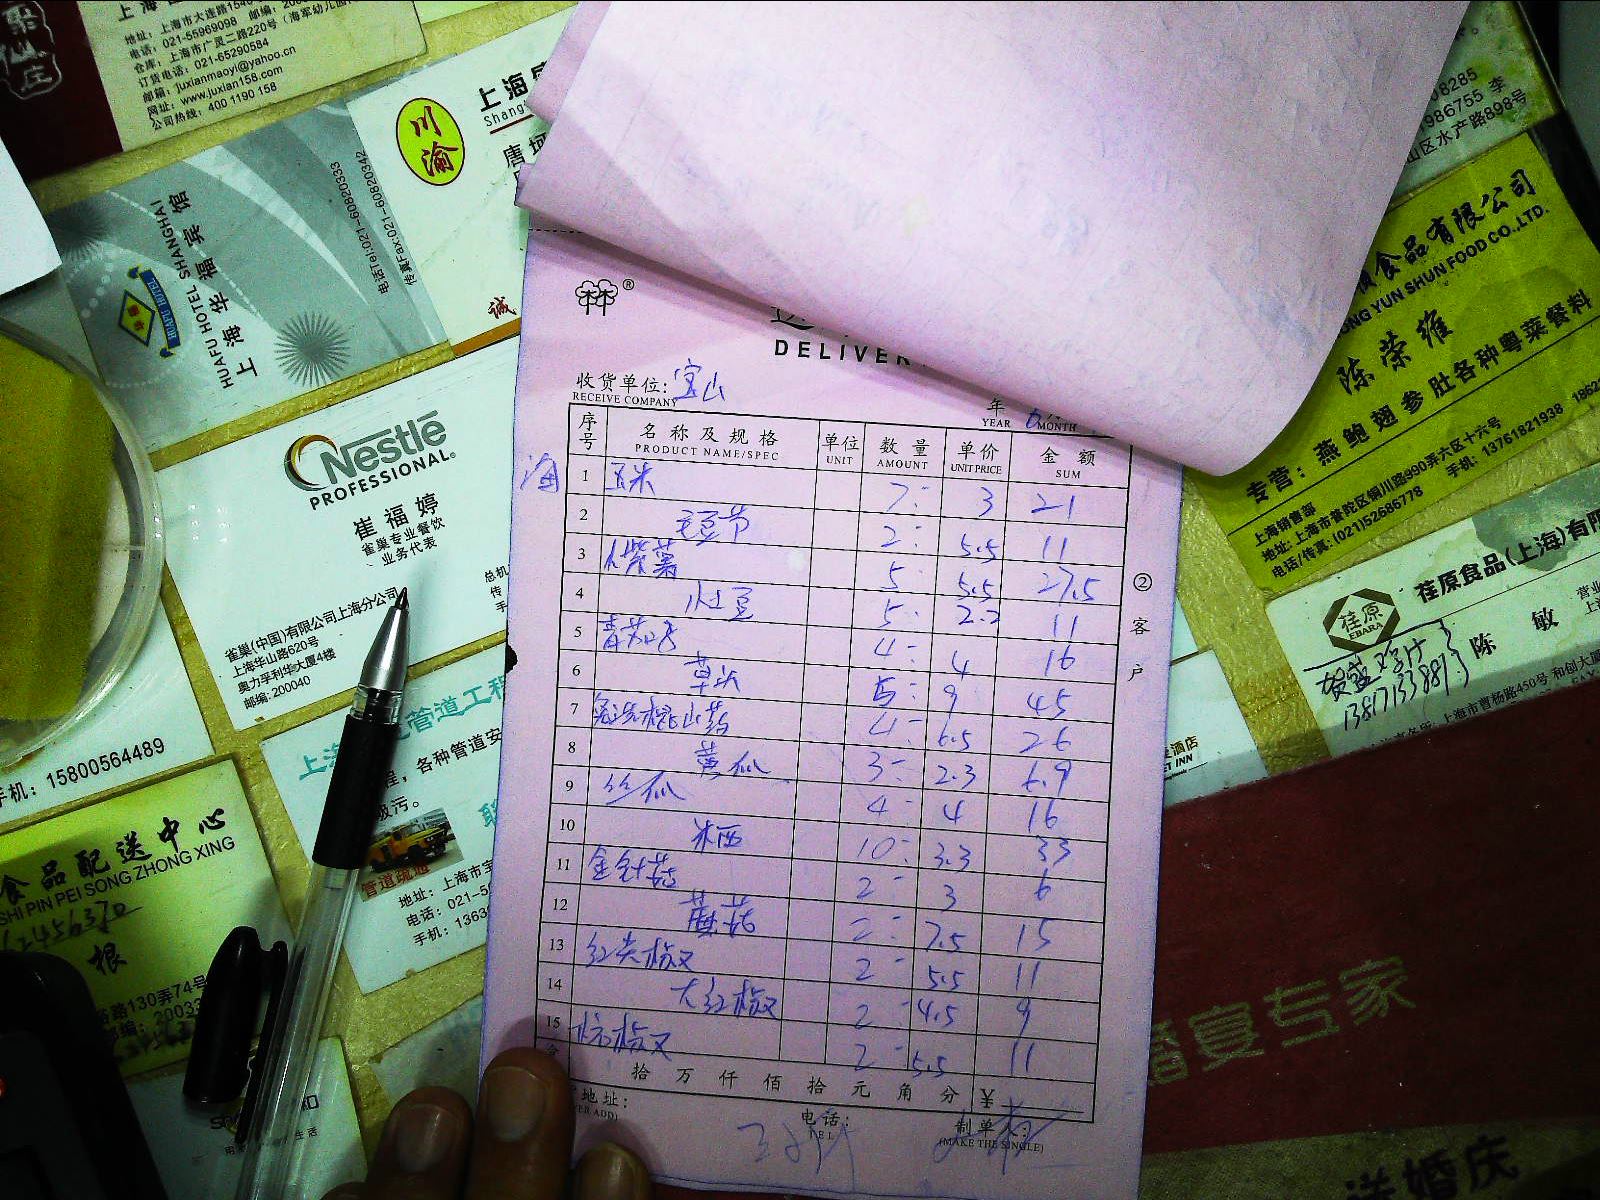 地址: 上海市大连路1540
电话: 021-55969098
仓库: 上海市广灵二路220号 (海军幼儿园
订货电话: 021-65290584
邮箱: juxianmaoyi@yahoo.cn
网址: www.juxian158.com
公司热线: 400 1190 158
川渝
上海
Shang
唐
诚
HUAFU HOTEL
HUAFU HOTEL SHANGHAI
上海华福宾馆
电话Tel:021-60820333
传真Fax:021-60820342
Nestlé
PROFESSIONAL®
崔福婷
雀巢专业餐饮
业务代表
雀巢(中国)有限公司上海分公司
上海华山路620号
奥力孚利华大厦4楼
邮编: 200040
总机
传
手
手机: 15800564489
管道工程
程, 各种管道安
吸污。
管道疏通
地址: 上海市宝
电话: 021-5
手机: 1363
食品配送中心
SHI PIN PEI SONG ZHONG XING
根
路130弄74号
®
DELIVER
收货单位: 宝山
RECEIVE COMPANY
年 6
YEAR MONTH
序号 名称及规格 单位 数量 单价 金额
PRODUCT NAME/SPEC UNIT AMOUNT UNIT PRICE SUM
海
1 玉米 7 3 21
2 毛豆节 2 5.5 11
3 紫薯 5 5.5 27.5
4 豆 5 2.2 11
5 青 4 4 16
6 草头 5 9 45
7 山药 4 6.5 26
8 黄瓜 3 2.3 6.9
9 丝瓜 4 4 16
10 西 10 3.3 33
11 金针菇 2 3 6
12 蘑菇 2 7.5 15
13 红尖椒 2 5.5 11
14 大红椒 2 4.5 9
15 椒 2 5.5 11
拾万仟佰拾元角分 ¥
地址:
电话:
TEL
制单人:
(MAKE THE SINGLE)
②客户
8285
1986755 李
山区水产路898号
食品有限公司
ONG YUN SHUN FOOD CO.,LTD.
陈荣维
专营: 燕鲍翅参肚各种粤菜餐料
上海销售部
地址: 上海市普陀区铜川路990弄六区十六号
电话/传真: (021)52685778 手机: 13761821938 1862
荏原
EBARA
荏原食品(上海)有限
陈敏
营业
上海市曹杨路450号 和创大厦
酒店
ET INN
婚宴专家
送婚庆